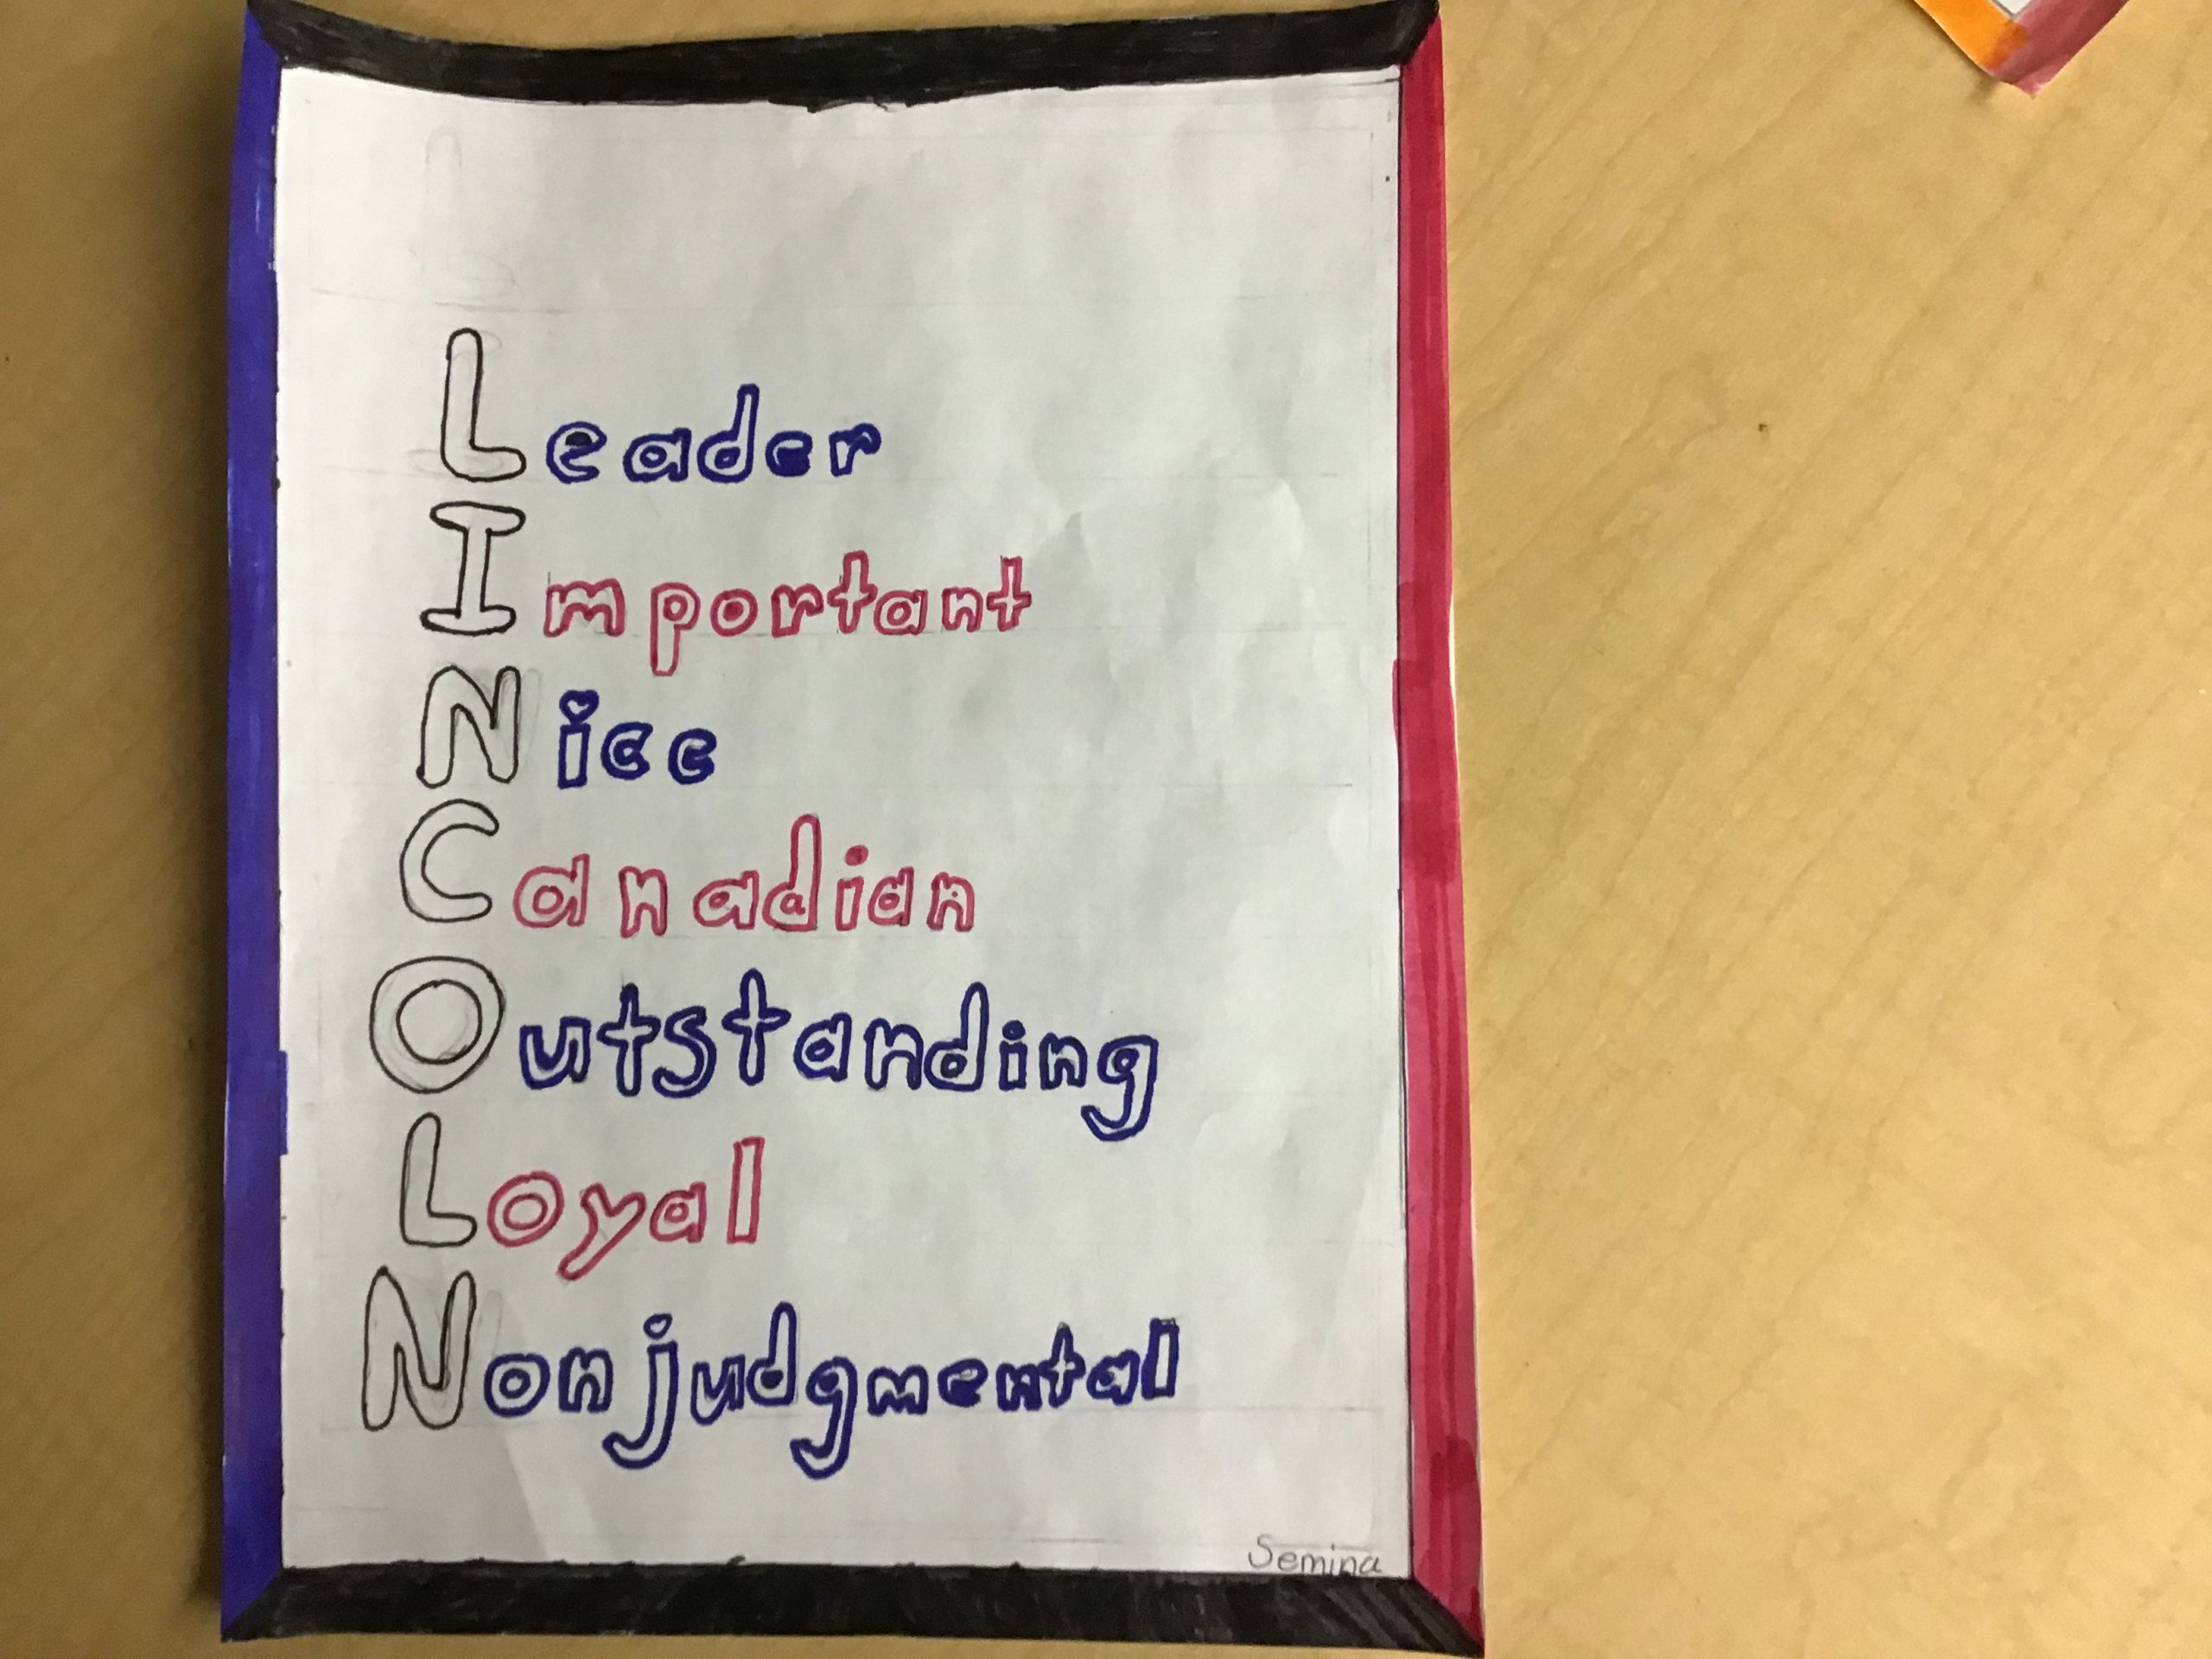 Leader
Important
Nice
Canadian
Outstanding
Loyal
Nonjudgmental
Semina